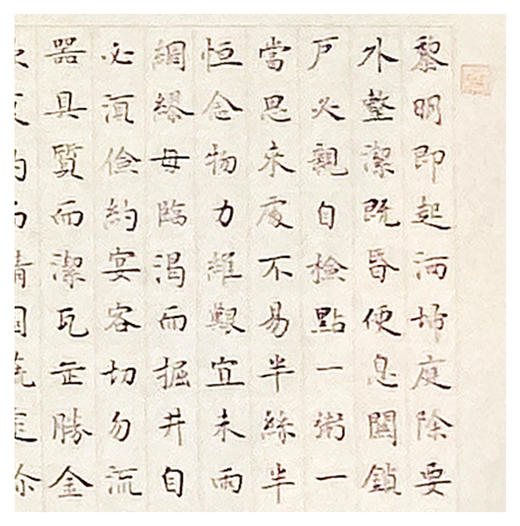 黎明即起洒埽庭除要
外整潔既昏便息關鎖
戶必親自檢點一粥一
當思來處不易半絲半
恒念物力維艱宜未雨
綢繆毋臨渴而掘井自
必須儉約宴客切勿流
器具質而潔瓦缶勝金